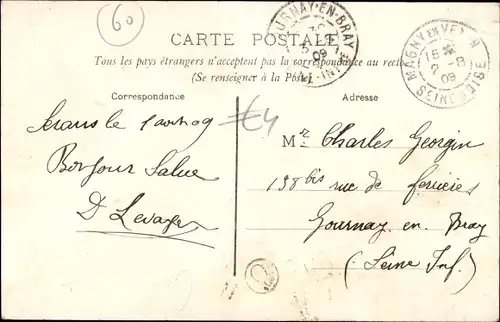 60
CARTE POSTALE
Tous les pays étrangers n'acceptent pas la correspondance au recto
(Se renseigner à la Poste)
GOURNAY-EN-BRAY
09
MAGNY EN VEXIN
15
2 -8
09
SEINE ET OISE
Correspondance
Adresse
le 1 août 09
Bonjour Salue
D Levager
€4
Mr Charles Georgin
138 bis rue de ferrières
Gournay en Bray
(Seine Inf.)